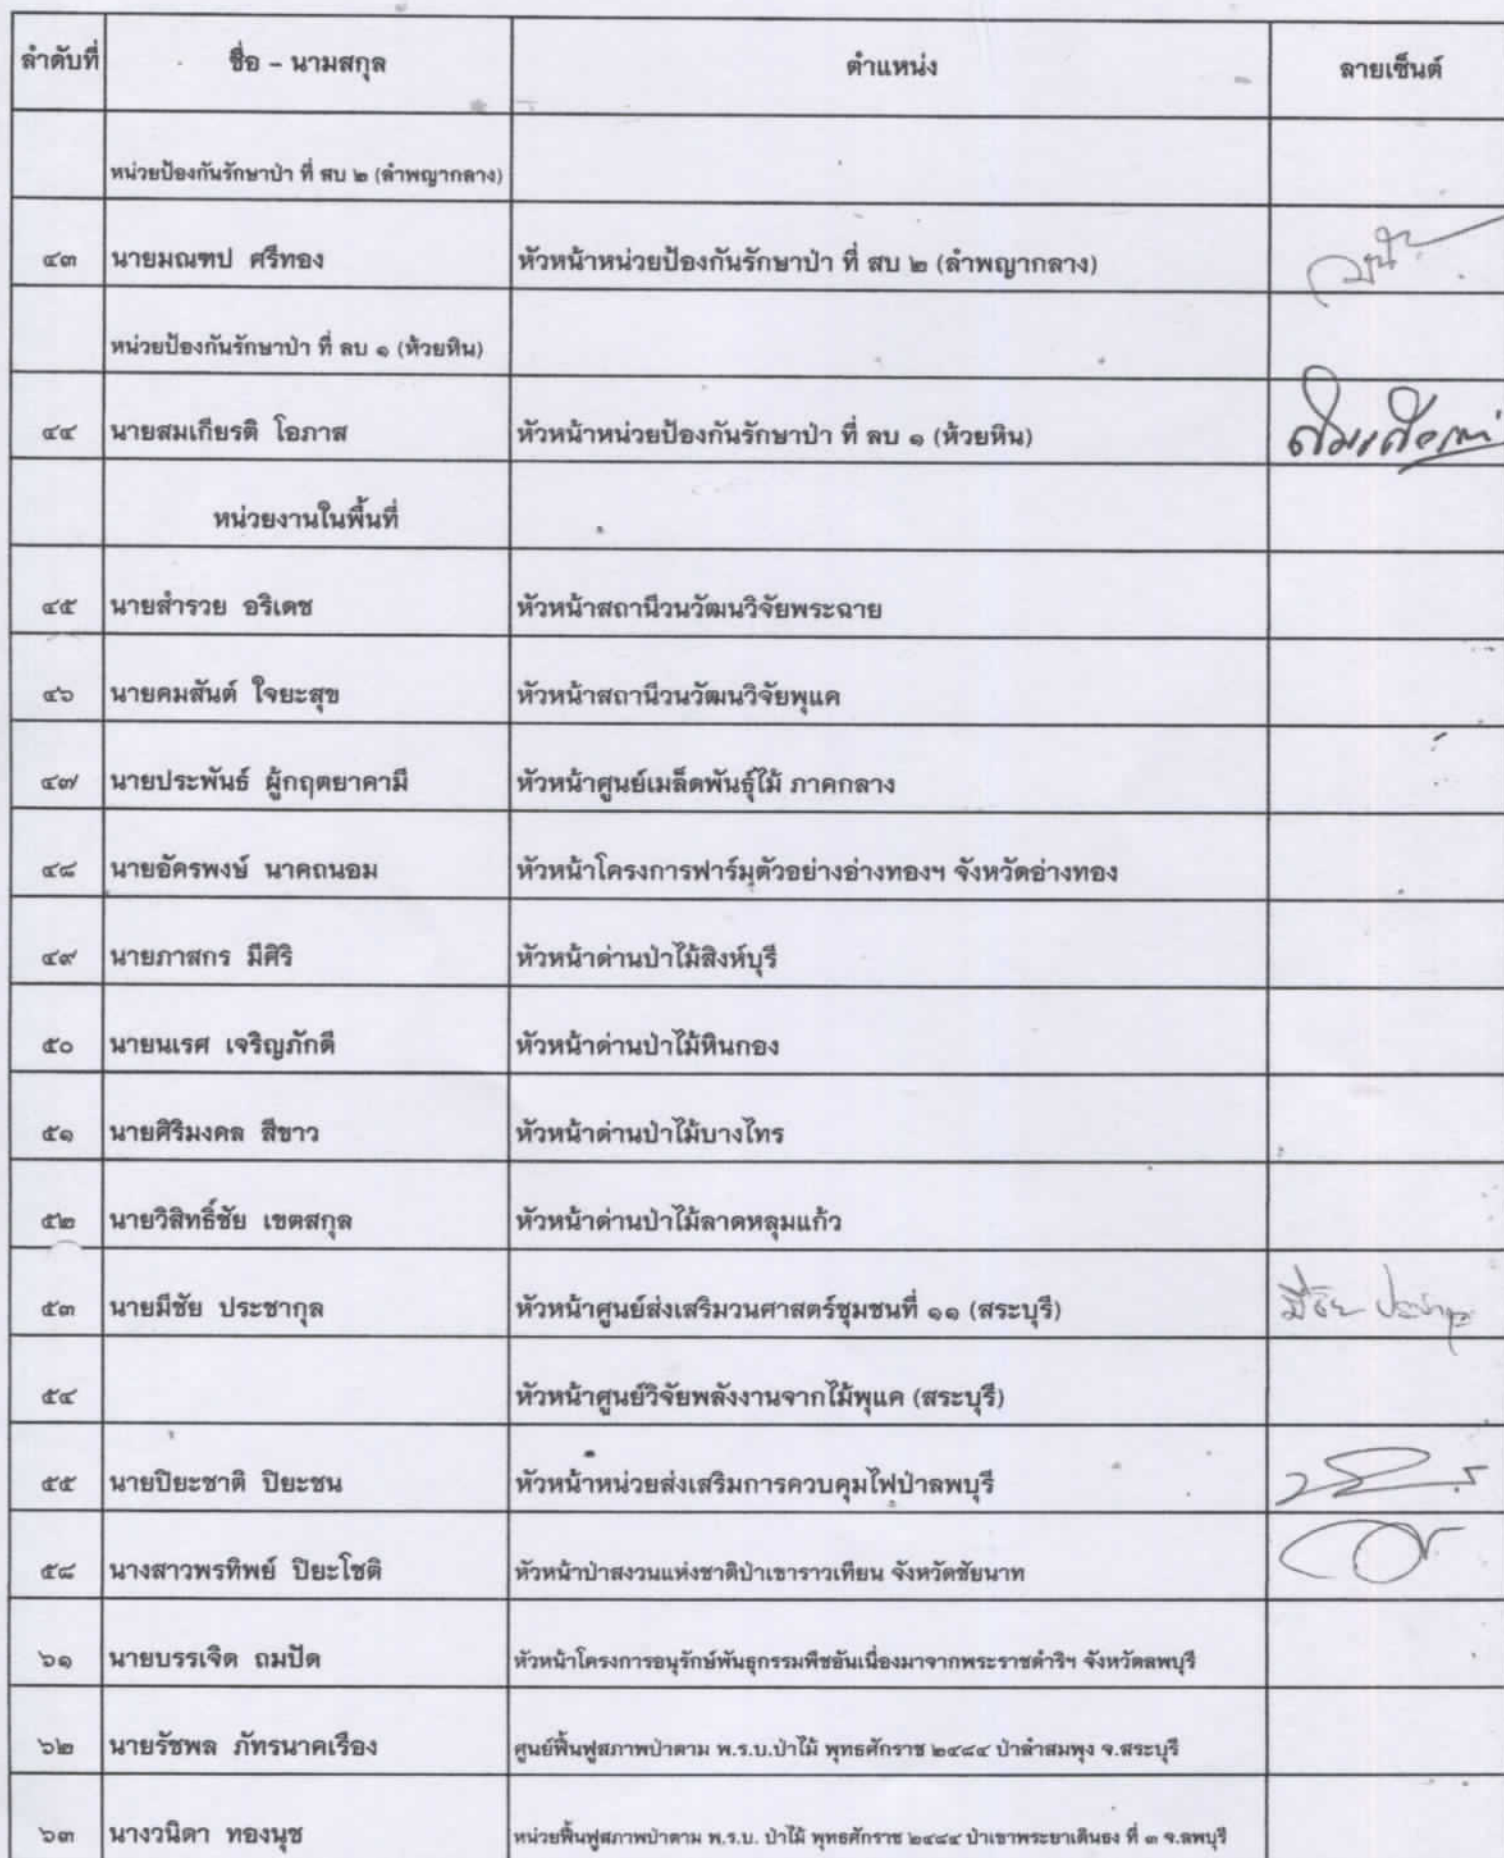 ลำดับที่ ชื่อ – นามสกุล ตำแหน่ง ลายเซ็นต์
หน่วยป้องกันรักษาป่า ที่ สบ ๒ (ลำพญากลาง)
๔๓ นายมณฑป ศรีทอง หัวหน้าหน่วยป้องกันรักษาป่า ที่ สบ ๒ (ลำพญากลาง)
หน่วยป้องกันรักษาป่า ที่ ลบ ๑ (ห้วยหิน)
๔๔ นายสมเกียรติ โอภาส หัวหน้าหน่วยป้องกันรักษาป่า ที่ ลบ ๑ (ห้วยหิน)
หน่วยงานในพื้นที่
๔๕ นายสำรวย อริเดช หัวหน้าสถานีวนวัฒนวิจัยพระฉาย
๔๖ นายคมสันต์ ใจยะสุข หัวหน้าสถานีวนวัฒนวิจัยพุแค
๔๗ นายประพันธ์ ผู้กฤตยาคามี หัวหน้าศูนย์เมล็ดพันธุ์ไม้ ภาคกลาง
๔๘ นายอัครพงษ์ นาคถนอม หัวหน้าโครงการฟาร์มตัวอย่างอ่างทองฯ จังหวัดอ่างทอง
๔๙ นายภาสกร มีศิริ หัวหน้าด่านป่าไม้สิงห์บุรี
๕๐ นายนเรศ เจริญภักดี หัวหน้าด่านป่าไม้หินกอง
๕๑ นายศิริมงคล สีขาว หัวหน้าด่านป่าไม้บางไทร
๕๒ นายวิสิทธิ์ชัย เขตสกุล หัวหน้าด่านป่าไม้ลาดหลุมแก้ว
๕๓ นายมีชัย ประชากุล หัวหน้าศูนย์ส่งเสริมวนศาสตร์ชุมชนที่ ๑๑ (สระบุรี) มีชัย ประชากุล
๕๔ หัวหน้าศูนย์วิจัยพลังงานจากไม้พุแค (สระบุรี)
๕๕ นายปิยะชาติ ปิยะชน หัวหน้าหน่วยส่งเสริมการควบคุมไฟป่าลพบุรี
๕๘ นางสาวพรทิพย์ ปิยะโชติ หัวหน้าป่าสงวนแห่งชาติป่าเขาราวเทียน จังหวัดชัยนาท
๖๑ นายบรรเจิด ถมปัด หัวหน้าโครงการอนุรักษ์พันธุกรรมพืชอันเนื่องมาจากพระราชดำริฯ จังหวัดลพบุรี
๖๒ นายรัชพล ภัทรนาคเรือง ศูนย์ฟื้นฟูสภาพป่าตาม พ.ร.บ.ป่าไม้ พุทธศักราช ๒๔๘๔ ป่าลำสมพุง จ.สระบุรี
๖๓ นางวนิดา ทองนุช หน่วยฟื้นฟูสภาพป่าตาม พ.ร.บ. ป่าไม้ พุทธศักราช ๒๔๘๔ ป่าเขาพระยาเดินธง ที่ ๓ จ.ลพบุรี